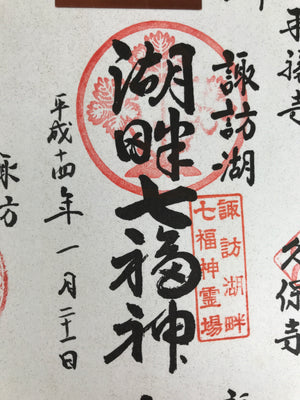 諏訪湖
湖畔七福神
諏訪湖畔
七福神霊場
平成十四年一月二十一日
久保寺
諏方